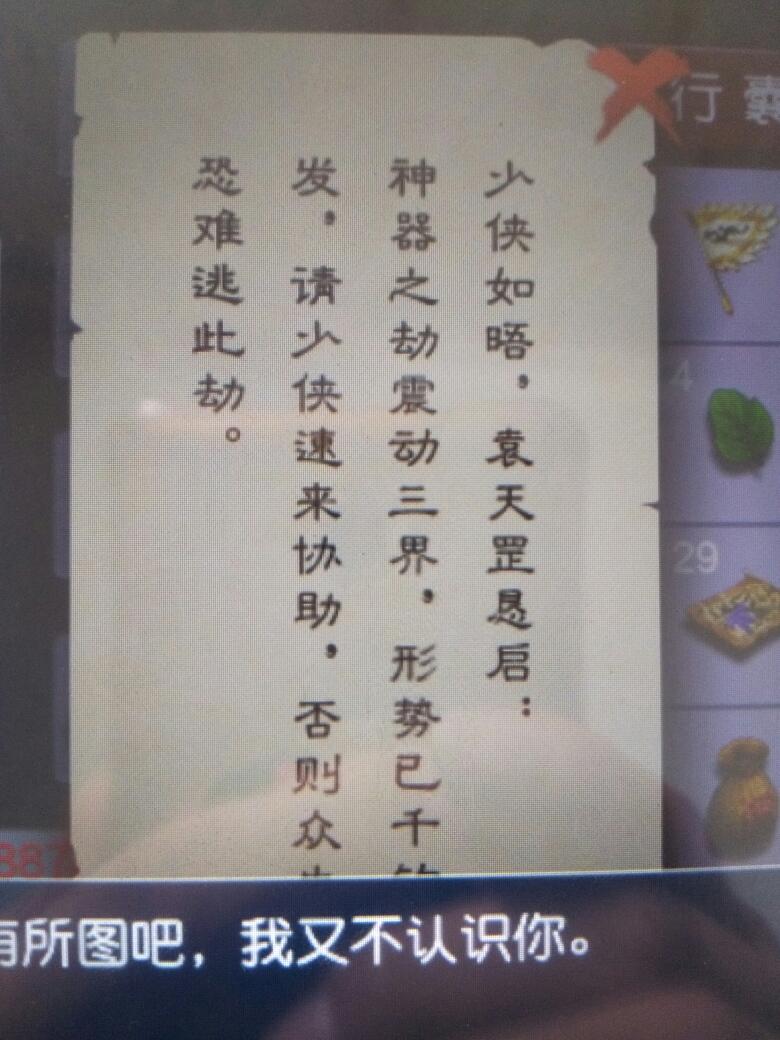 少侠如晤，袁天罡恳启：
神器之劫震动三界，形势已千
发，请少侠速来协助，否则众
恐难逃此劫。
行囊
4
29
887
所图吧，我又不认识你。